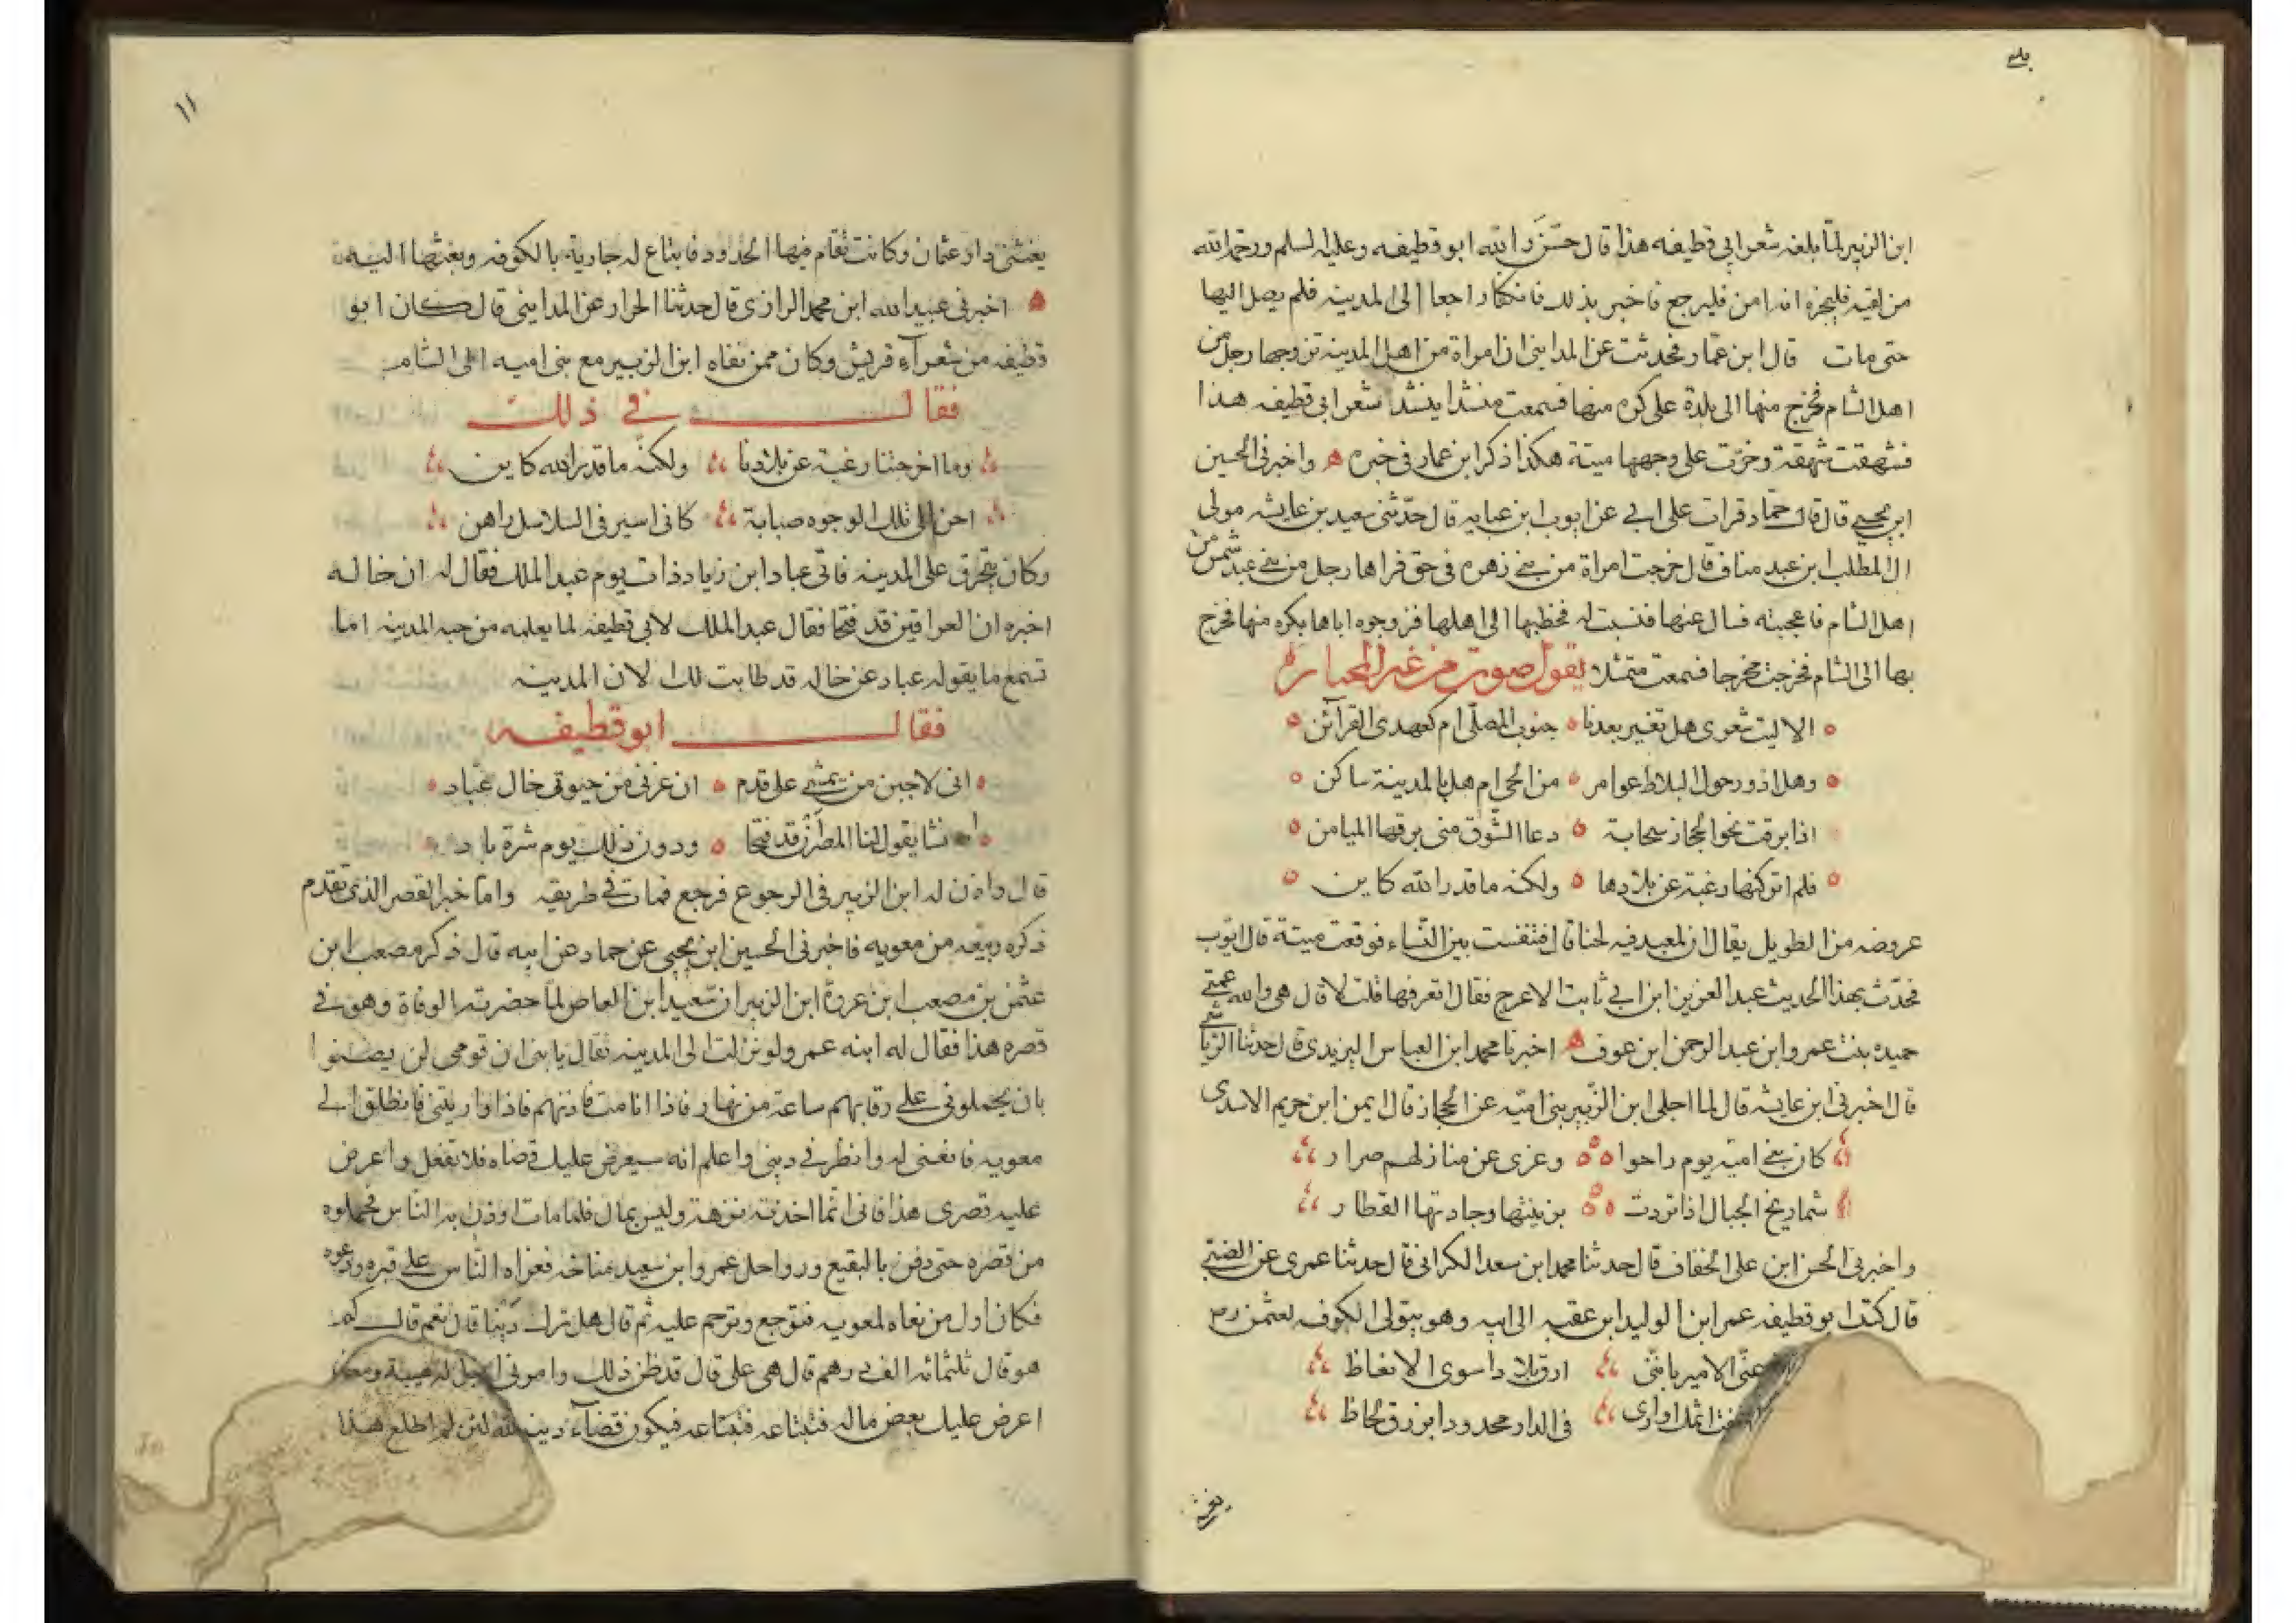 ابن الزبير لما بلغه شعر ابي قطيفه هذا قال حسّن والله ابو قطيفه وعليه السلم ورحمة الله
من لقيه فليخبره انه امن فليرجع فاخبر بذلك فانكفا راجعا الى المدينه فلم يصل اليها
حتى مات قال ابن عمار فحدثت عن المدايني ان امراة من اهل المدينه تزوجها رجل من
اهل الشام فخرج منها الى بلدة على كره منها فسمعت منشدا ينشد شعر ابي قطيفه هذا
فشهقت شهقة وخرّت على وجهها ميتة هكذا ذكر ابن عمار في خبره ه واخبرني الحسين
ابن يحيى قال قال حمّاد قرات على ابي عن ايوب ابن عبايه قال حدّثني سعيد بن عايشه مولى
ال المطلب ابن عبد مناف قال خرجت امراة من بني زهره في حق فراها رجل من بني عبد شمس من
اهل الشام فاعجبته فسال عنها فنسبت له فخطبها الى اهلها فزوجوه اياها بكره منها فخرج
بها الى الشام فخرجت مخرجا فسمعت متمثلا يقول صوت من غير المختار
الا ليت شعرى هل تغير بعدنا جنوب المصلّى ام كعهدى القرآئن
وهل ادور حول البلاط عوامر من الحى ام هل بالمدينة ساكن
اذا برقت نحو الحجاز سحابة دعا الشّوق منى برقها الميامن
فلم اتركنها رغبة عن بلادها ولكنه ما قدر الله كاين
عروضه من الطويل يقال ان لمعبد فيه لحنا قال فتنفست بين النّساء فوقعت ميتة قال ايوب
فحدّثت بهذا الحديث عبد العزيز ابن ابي ثابت الاعرج فقال اتعرفها قلت لا قال هى والله عمتى
حميده بنت عمر وابن عبد الرحمن ابن عوف ه اخبرنا محمد ابن العباس اليزيدى قال حدثنا الرياشى
قال اخبرني ابن عايشه قال لما اجلى ابن الزّبير بنى اميّه عن الحجاز قال ايمن ابن خريم الاسدى
كان بنى اميّه يوم راحوا وعرى عن منازلهم صرار
شماريخ الجبال اذا تردت بزينتها وجادتها القطار
واخبرني الحسن ابن على الخفاف قال حدثنا محمد ابن سعد الكراني قال حدثنا عمرى عن الضبّى
قال كتب ابو قطيفه عمر ابن الوليد ابن عقبه الى ابيه وهو يتولى الكوفه لعثمن رض
عنّى الامير بانّنى ارق بلا داء سوى الانعاظ
في الدار محدود ابن زرق لحاظ
يغشى
١١
يغشى دار عثمان وكانت تقام فيها الحدود فابتاع له جارية بالكوفه وبعثها اليه
ه اخبرني عبيد الله ابن محمد الرازى قال حدثنا الحرار عن المدايني قال كان ابو
قطيفه من شعرآء قريش وكان ممن نفاه ابن الزبير مع بنى اميه الى الشام
فقال في ذلك
وما اخرجتنا رغبة عن بلادنا ولكنه ما قدر الله كاين
احن الى تلك الوجوه صبابة كانى اسير في السلاسل راهن
وكان يتحرق على المدينه فاتى عباد ابن زياد ذات يوم عبد الملك فقال له ان خاله
اخبره ان العراقين قد فتحا فقال عبد الملك لابي قطيفه لما يعلمه من حبه المدينه اما
تسمع ما يقوله عباد عن خاله قد طابت لك الان المدينه
فقال ابو قطيفه
انى لاجبن من يمشى على قدم ان غرنى من حيوتى خال عبّاد
يقول لنا المصرّان قد فتحا ودون ذلك يوم شرة باد
قال واذن له ابن الزبير في الرجوع فرجع فمات في طريقه وامّا خبر القصر الذى تقدم
ذكره وبيعه من معويه فاخبرني الحسين ابن يحيى عن حماد عن ابيه قال ذكر مصعب ابن
عثمن بن مصعب ابن عروة ابن الزبير ان سعيد ابن العاص لما حضرته الوفاة وهو في
قصره هذا فقال له ابنه عمر ولو نزلت الى المدينه فقال يا بنى ان قومى لن يضنوا
بان يحملونى على رقابهم ساعة من نهار فاذا انا مت فاذنهم فاذا واريتنى فانطلق الى
معويه فانعنى له وانظر في دينى واعلم انه سيعرض عليك قضاه فلا تفعل واعرض
عليه قصرى هذا فانى انّما اخذته نزهة وليس بمال فلما مات اوذن به النّاس فحملوه
من قصره حتى دفن بالبقيع ورواحل عمر وابن سعيد مناخه فعزاه النّاس على قبره وودعوه
فكان اول من نعاه لمعويه فتوجع وترحم عليه ثم قال هل ترك دَيْنا قال نعم قال كم
هو قال ثلثمائه الف درهم قال هى على قال قد ظن ذلك وامرنى
اعرض عليك بعض ماله فتبتاعه فتبتاعه فيكون قضآء دينه